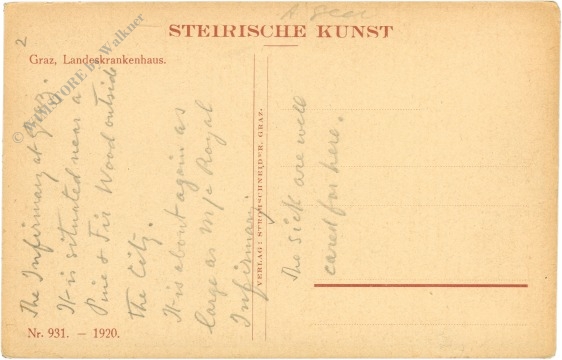 STEIRISCHE KUNST
Graz, Landeskrankenhaus.
2
The Infirmary at Graz.
It is situated near a
Pine & Fir Wood outside
the City.
It is about again as
large as M/c Royal
Infirmary.
The sick are well
cared for here.
VERLAG: STROHSCHNEIDER, GRAZ.
Nr. 931. – 1920.
Walkner